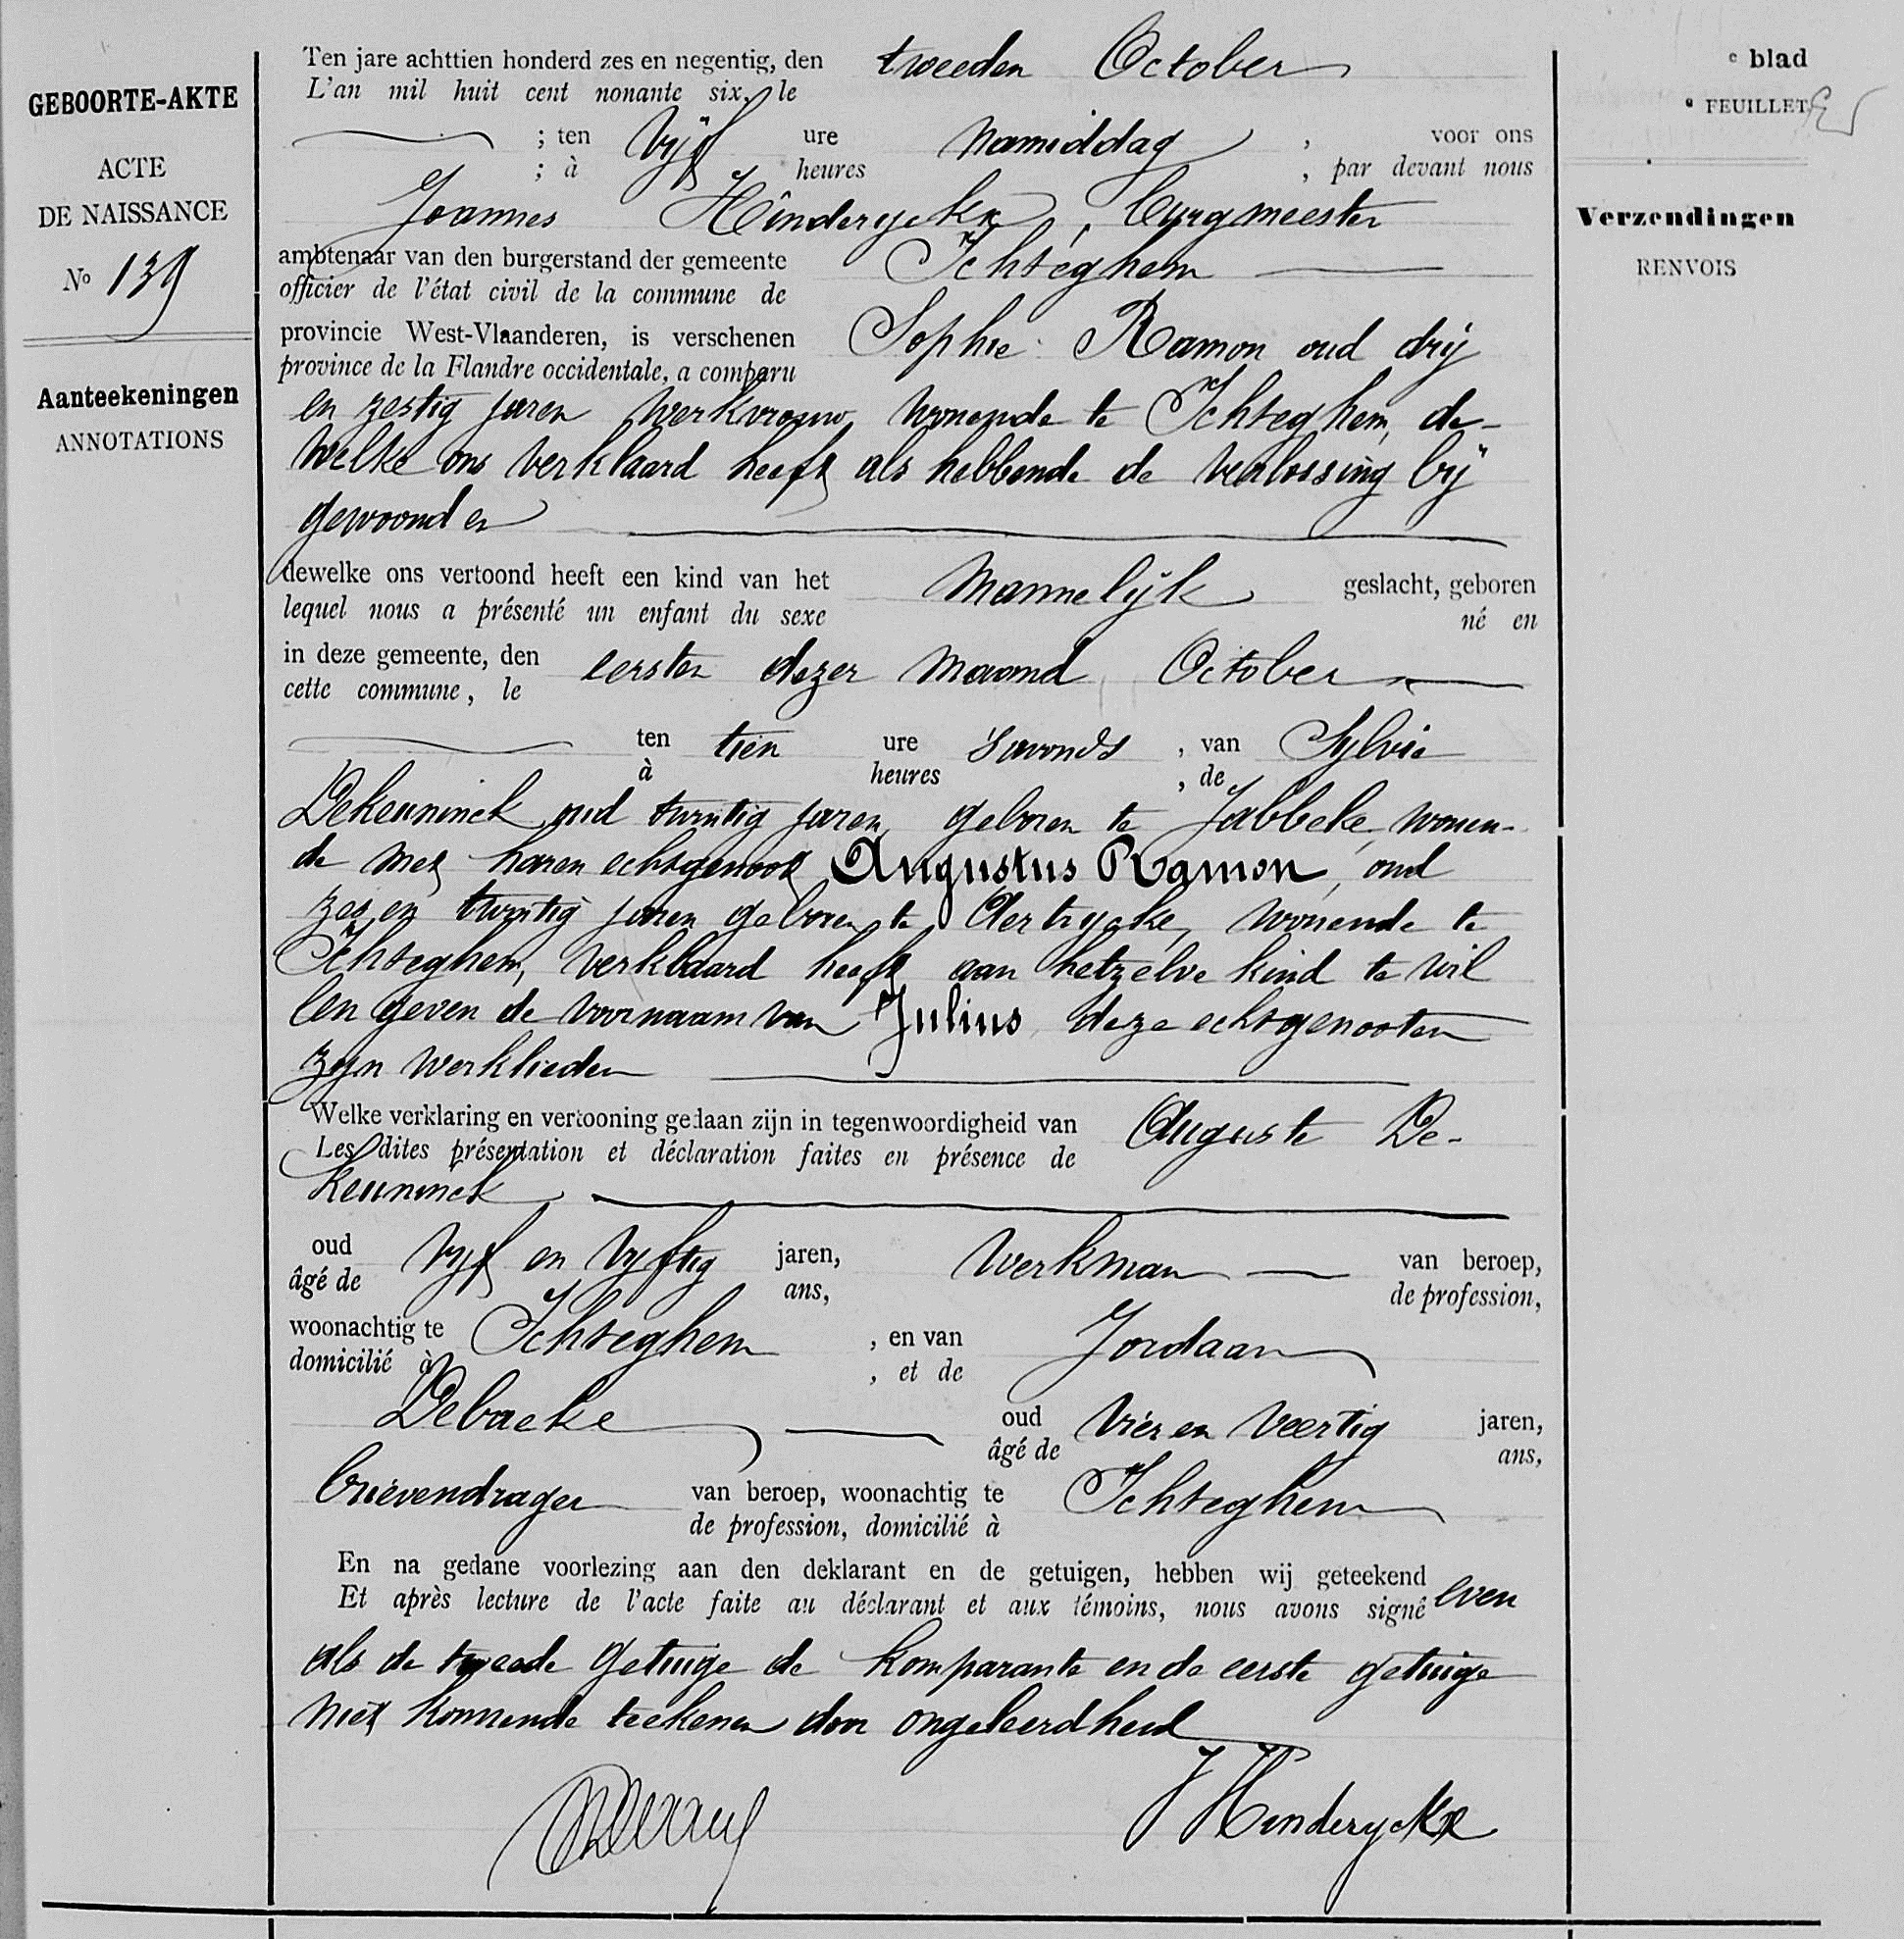 GEBOORTE-AKTE
ACTE
DE NAISSANCE
No 139
Aanteekeningen
ANNOTATIONS
Ten jare achttien honderd zes en negentig, den tweeden October
L'an mil huit cent nonante six, le
; ten vijf ure namiddag , voor ons
; à heures , par devant nous
Joannes Hinderyckx, burgmeester
ambtenaar van den burgerstand der gemeente Ichteghem
officier de l'état civil de la commune de
provincie West-Vlaanderen, is verschenen Sophie Ramon oud drij
province de la Flandre occidentale, a comparu
en zestig jaren werkvrouw, wonende te Ichteghem, de-
welke ons verklaard heeft als hebbende de verlossing bij
gewoond en
dewelke ons vertoond heeft een kind van het mannelijk geslacht, geboren
lequel nous a présenté un enfant du sexe né en
in deze gemeente, den eersten dezer maand October
cette commune, le
ten tien ure s'avonds , van Sylvie
à heures , de
Dekeuninck oud twintig jaren, geboren te Jabbeke, wonen-
de met haren echtgenoot Augustus Ramon, oud
zes en twintig jaren geboren te Aertrycke, wonende te
Ichteghem, verklaard heeft aan hetzelve kind te wil
len geven de voornaam van Julius deze echtgenooten
zyn werklieden
Welke verklaring en vertooning gedaan zijn in tegenwoordigheid van Auguste De-
Les dites présentation et déclaration faites en présence de
keuninck
oud vyf en vyftig jaren, werkman van beroep,
âgé de ans, de profession,
woonachtig te Ichteghem , en van Jordaan
domicilié à , et de
Debacke oud vier en veertig jaren,
âgé de ans,
brievendrager van beroep, woonachtig te Ichteghem
de profession, domicilié à
En na gedane voorlezing aan den deklarant en de getuigen, hebben wij geteekend even
Et après lecture de l'acte faite au déclarant et aux témoins, nous avons signé
als de tweede getuige de komparante en de eerste getuige
niet konnende teekenen door ongeleerdheid
J Hinderyckx
e blad
e FEUILLET
Verzendingen
RENVOIS